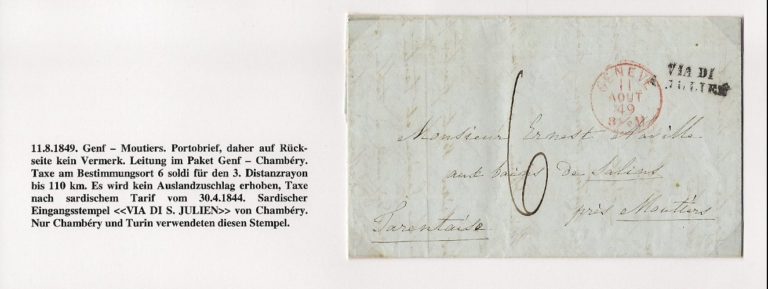 11.8.1849. Genf – Moutiers. Portobrief, daher auf Rück-
seite kein Vermerk. Leitung im Paket Genf – Chambéry.
Taxe am Bestimmungsort 6 soldi für den 3. Distanzrayon
bis 110 km. Es wird kein Auslandzuschlag erhoben, Taxe
nach sardischem Tarif vom 30.4.1844. Sardischer
Eingangsstempel <<VIA DI S. JULIEN>> von Chambéry.
Nur Chambéry und Turin verwendeten diesen Stempel.
GENEVE
11
AOUT
49
VIA DI
6
Monsieur Ernest Naville
aux bains de Salins
près Moutiers
Tarentaise